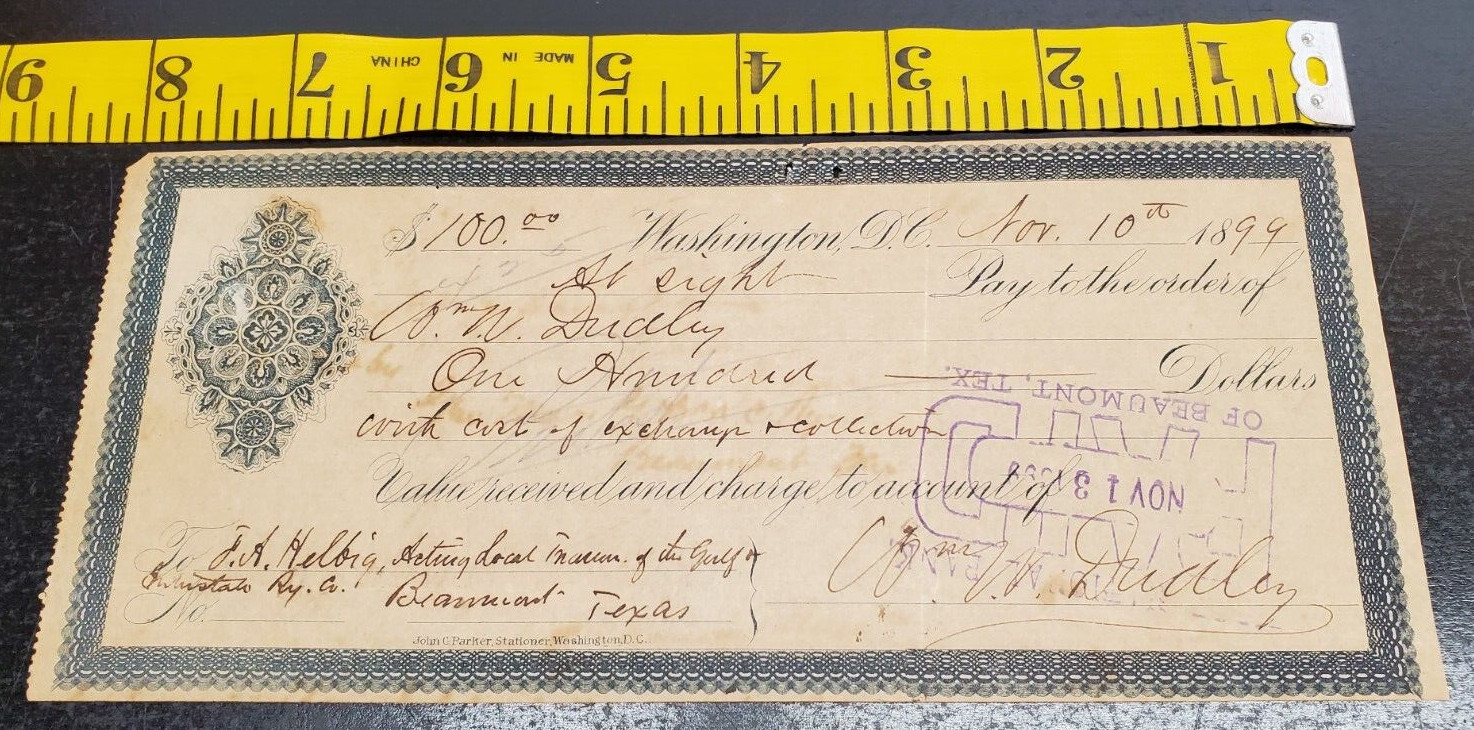 1 2 3 4 5 6 7 8 9
MADE IN CHINA
$100.00 Washington, D.C. Nov. 10th 1899
At sight Pay to the order of
Wm. W. Dudley
One Hundred Dollars
with cost of exchange & collection
Value received and charge to account of
To J. A. Helbig, Acting Local Treasr. of the Gulf &
Interstate Ry. Co. Beaumont Texas
No.
Wm. W. Dudley
John C. Parker, Stationer, Washington, D.C.
PAID
NOV 13 1899
BANK
OF BEAUMONT, TEX.